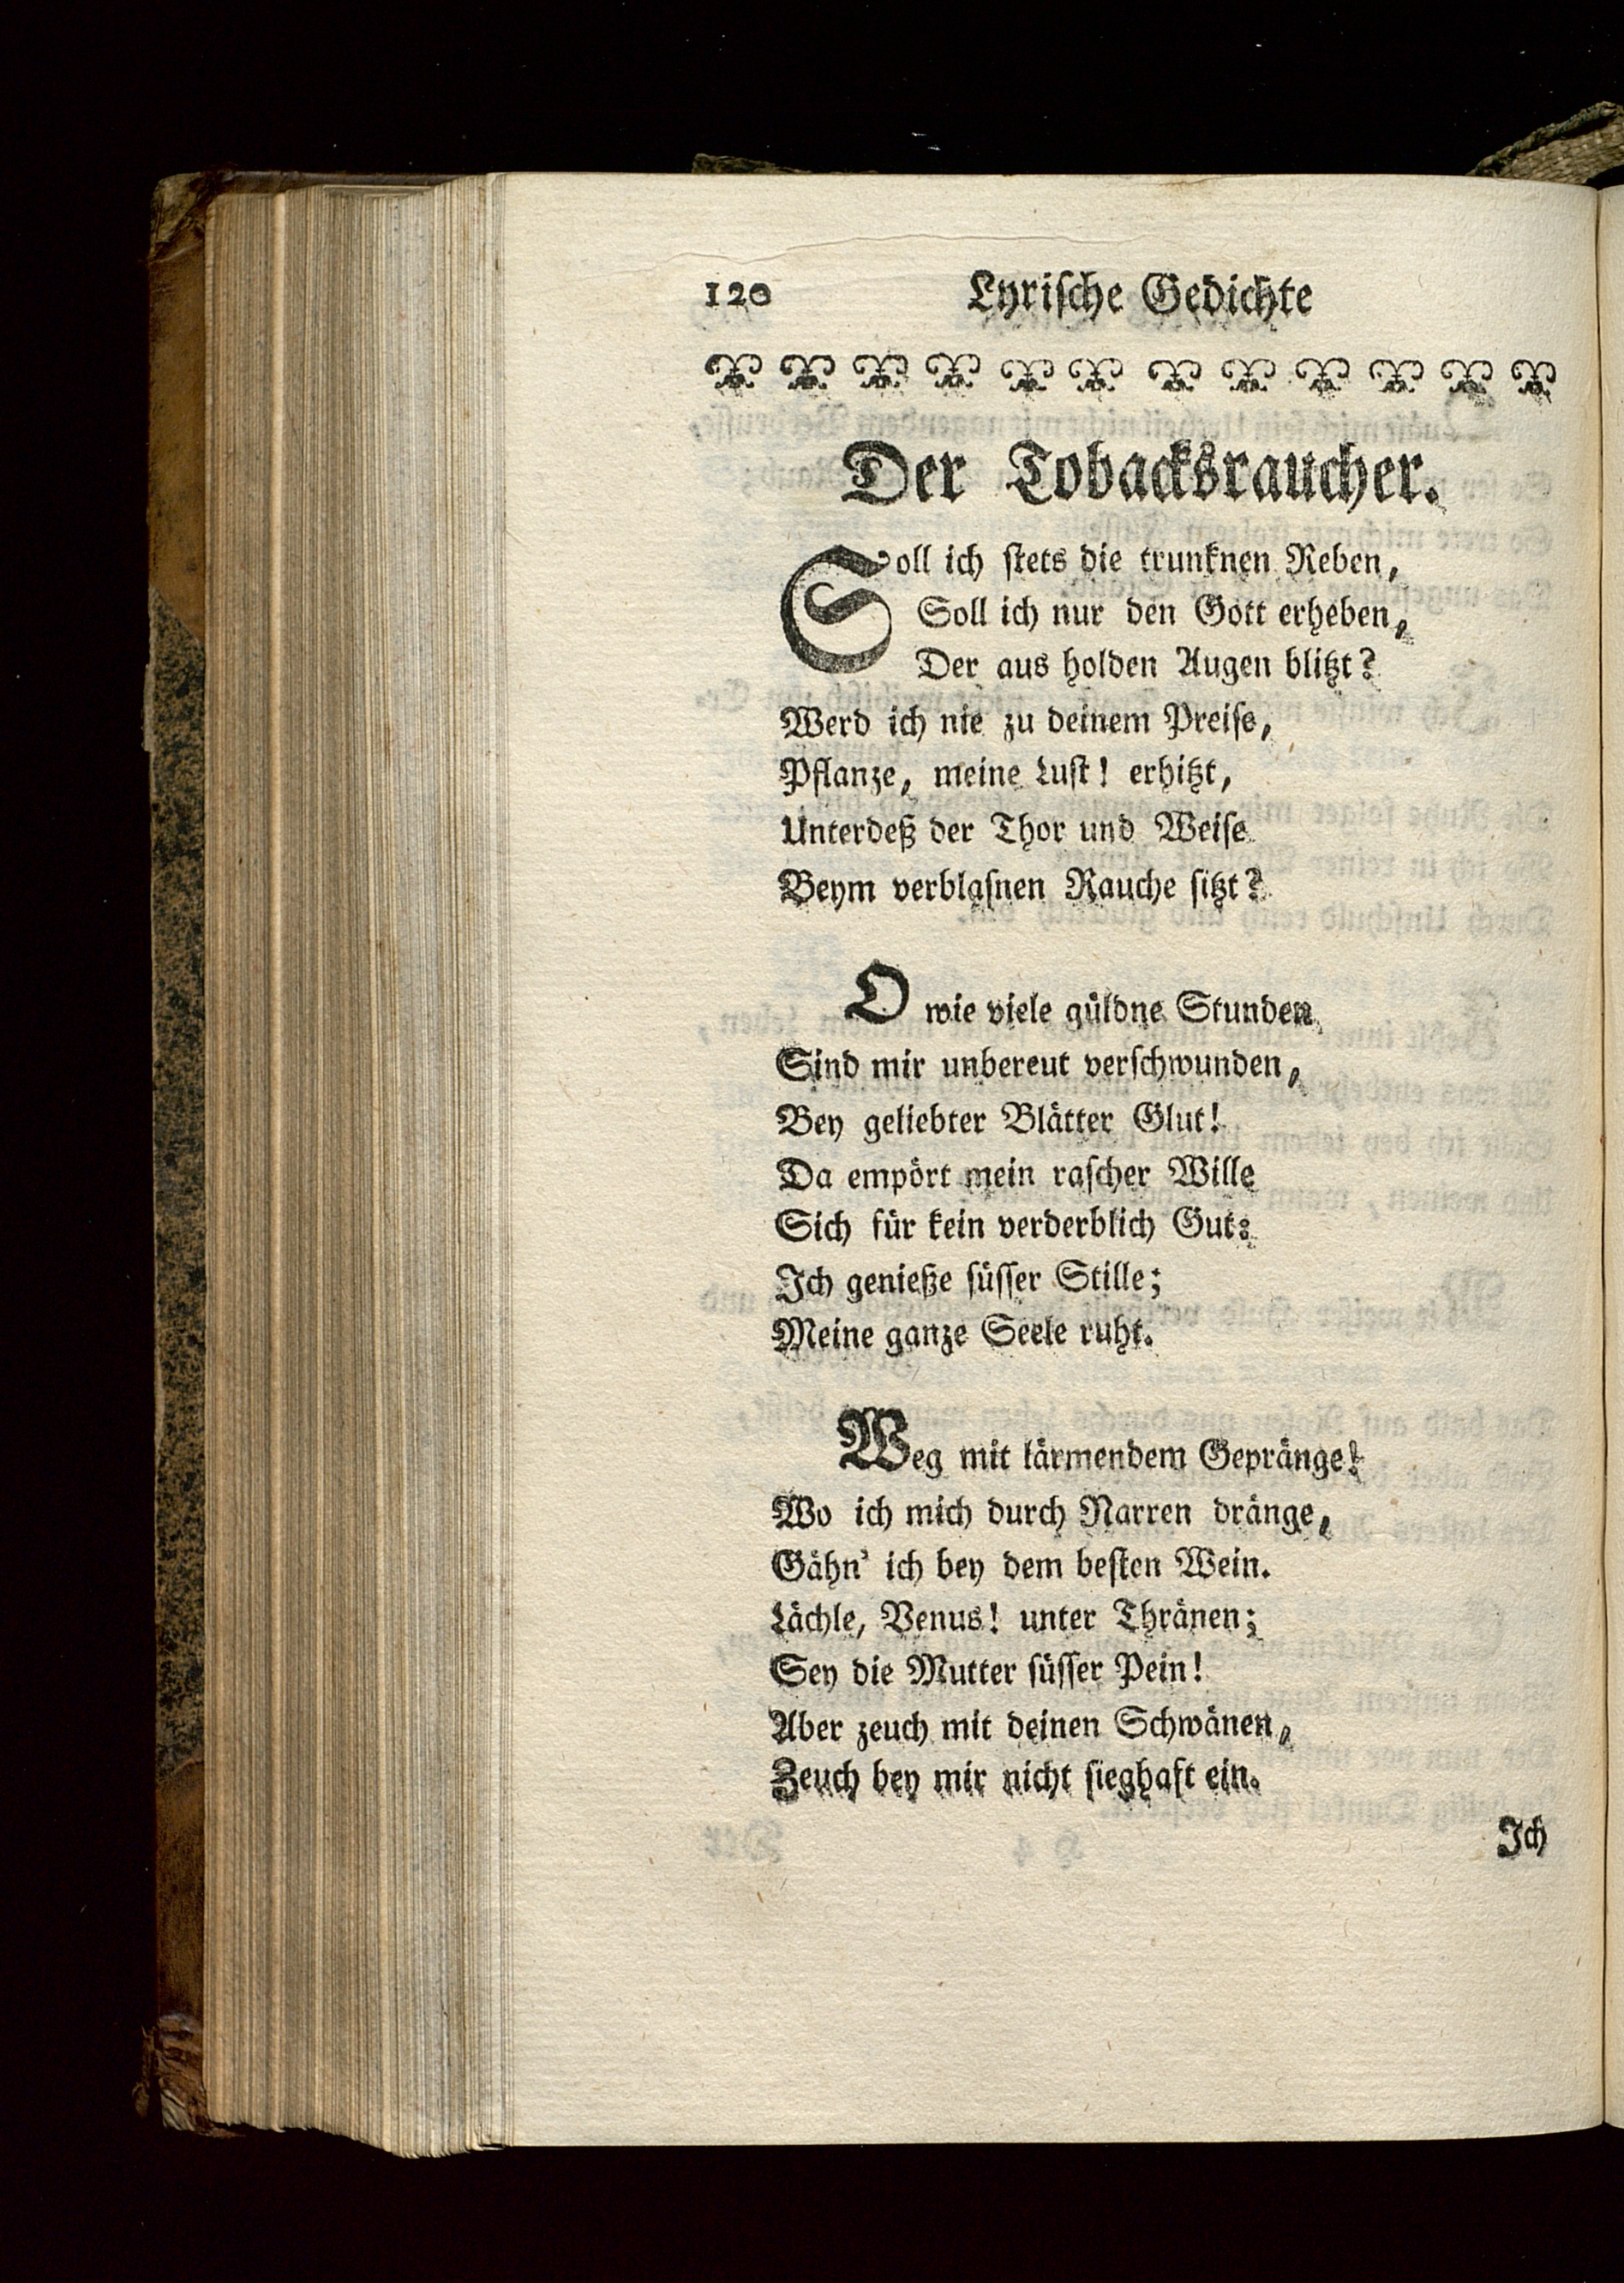 120 Lyriſche Gedichte
Der Tobacksraucher.
Soll ich ſtets die trunknen Reben,
Soll ich nur den Gott erheben,
Der aus holden Augen blitzt?
Werd ich nie zu deinem Preiſe,
Pflanze, meine Luſt! erhitzt,
Unterdeß der Thor und Weiſe
Beym verblaſnen Rauche ſitzt?
O wie viele güldne Stunden
Sind mir unbereut verſchwunden,
Bey geliebter Blätter Glut!
Da empört mein raſcher Wille
Sich für kein verderblich Gut:
Ich genieße ſüſſer Stille;
Meine ganze Seele ruht.
Weg mit lärmendem Gepränge!
Wo ich mich durch Narren dränge,
Gähn' ich bey dem beſten Wein.
Lächle, Venus! unter Thränen;
Sey die Mutter ſüſſer Pein!
Aber zeuch mit deinen Schwänen,
Zeuch bey mir nicht ſieghaft ein.
Ich